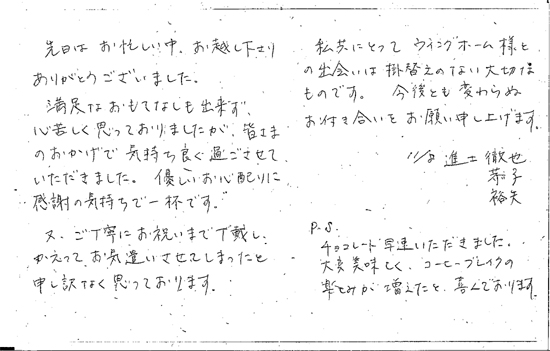 先日は お忙しい中、お越し下さり
ありがとうございました。
満足なおもてなしも出来ず、
心苦しく思っておりましたが、皆さま
のおかげで 気持ち良く過ごさせて
いただきました。優しいお心配りに
感謝の気持ちで一杯です。
又、ご丁寧にお祝いまで頂戴し、
かえって お気遣いさせてしまったと
申し訳なく思っております。
私共にとって ウイングホーム様と
の出会いは 掛替えのない大切な
ものです。 今後とも変わらぬ
お付き合いをお願い申し上げます。
進士 徹也
子
裕矢
P.S.
チョコレート早速いただきました。
大変美味しく、コーヒーブレイクの
楽しみが 増えたと、喜んでおります。